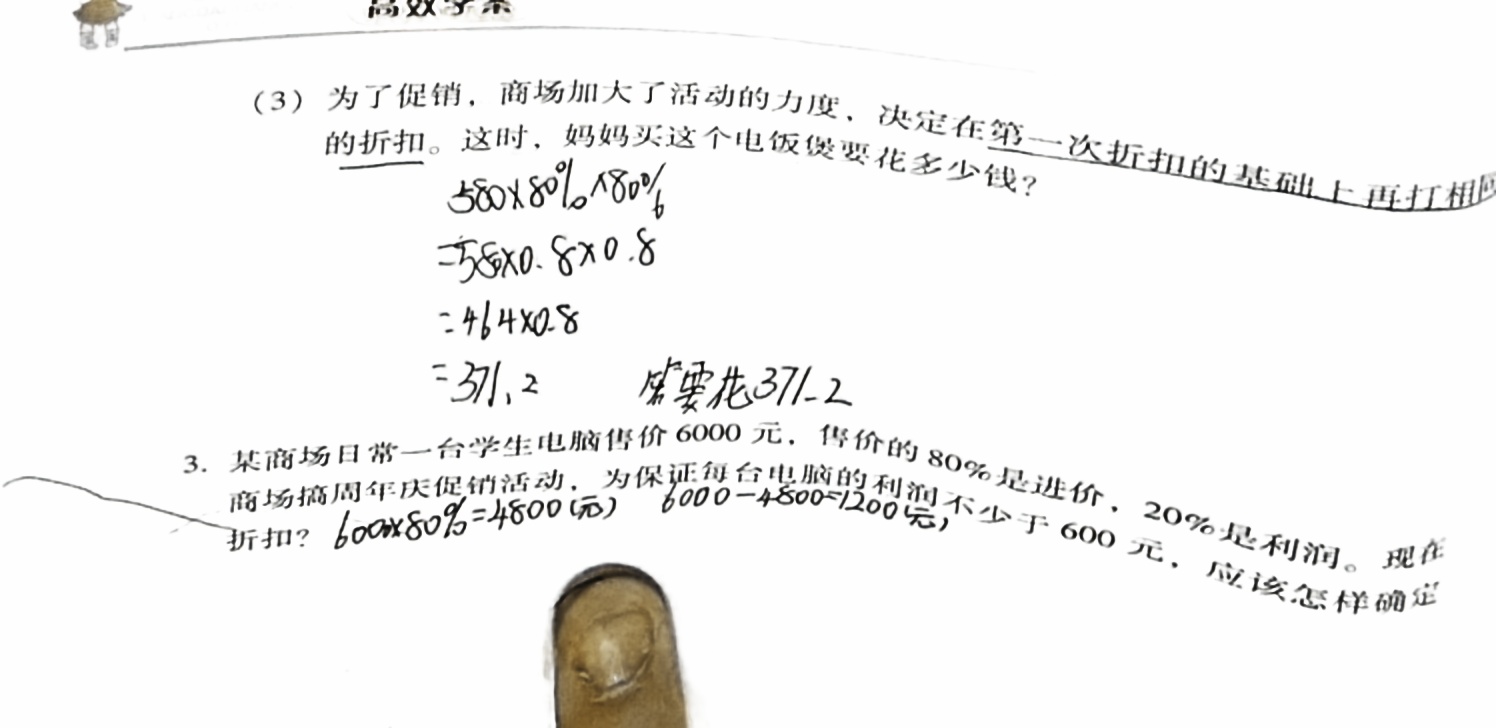 高效学案
(3) 为了促销，商场加大了活动的力度，决定在第一次折扣的基础上再打相同
的折扣。这时，妈妈买这个电饭煲要花多少钱？
580×80%×80%
=580×0.8×0.8
=464×0.8
=371.2 需要花371.2
3. 某商场日常一台学生电脑售价6000元，售价的80%是进价，20%是利润。现在
商场搞周年庆促销活动，为保证每台电脑的利润不少于600元，应该怎样确定
折扣？ 6000×80%=4800(元) 6000-4800=1200(元)